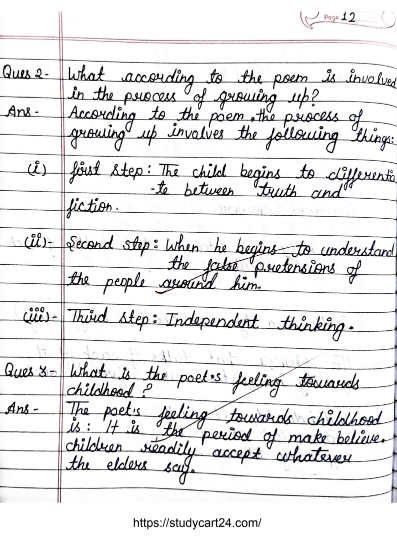 Page 12
Ques 2- What according to the poem is involved
in the process of growing up?
Ans- According to the poem, the process of
growing up involves the following things:
(i) first step: The child begins to differentia
-te between truth and
fiction.
(ii)- Second step: When he begins to understand
the false pretensions of
the people around him.
(iii)- Third step: Independent thinking.
Ques 3- What is the poet's feeling towards
childhood?
Ans- The poet's feeling towards childhood
is: It is the period of make believe.
children readily accept whatever
the elders say.
https://studycart24.com/